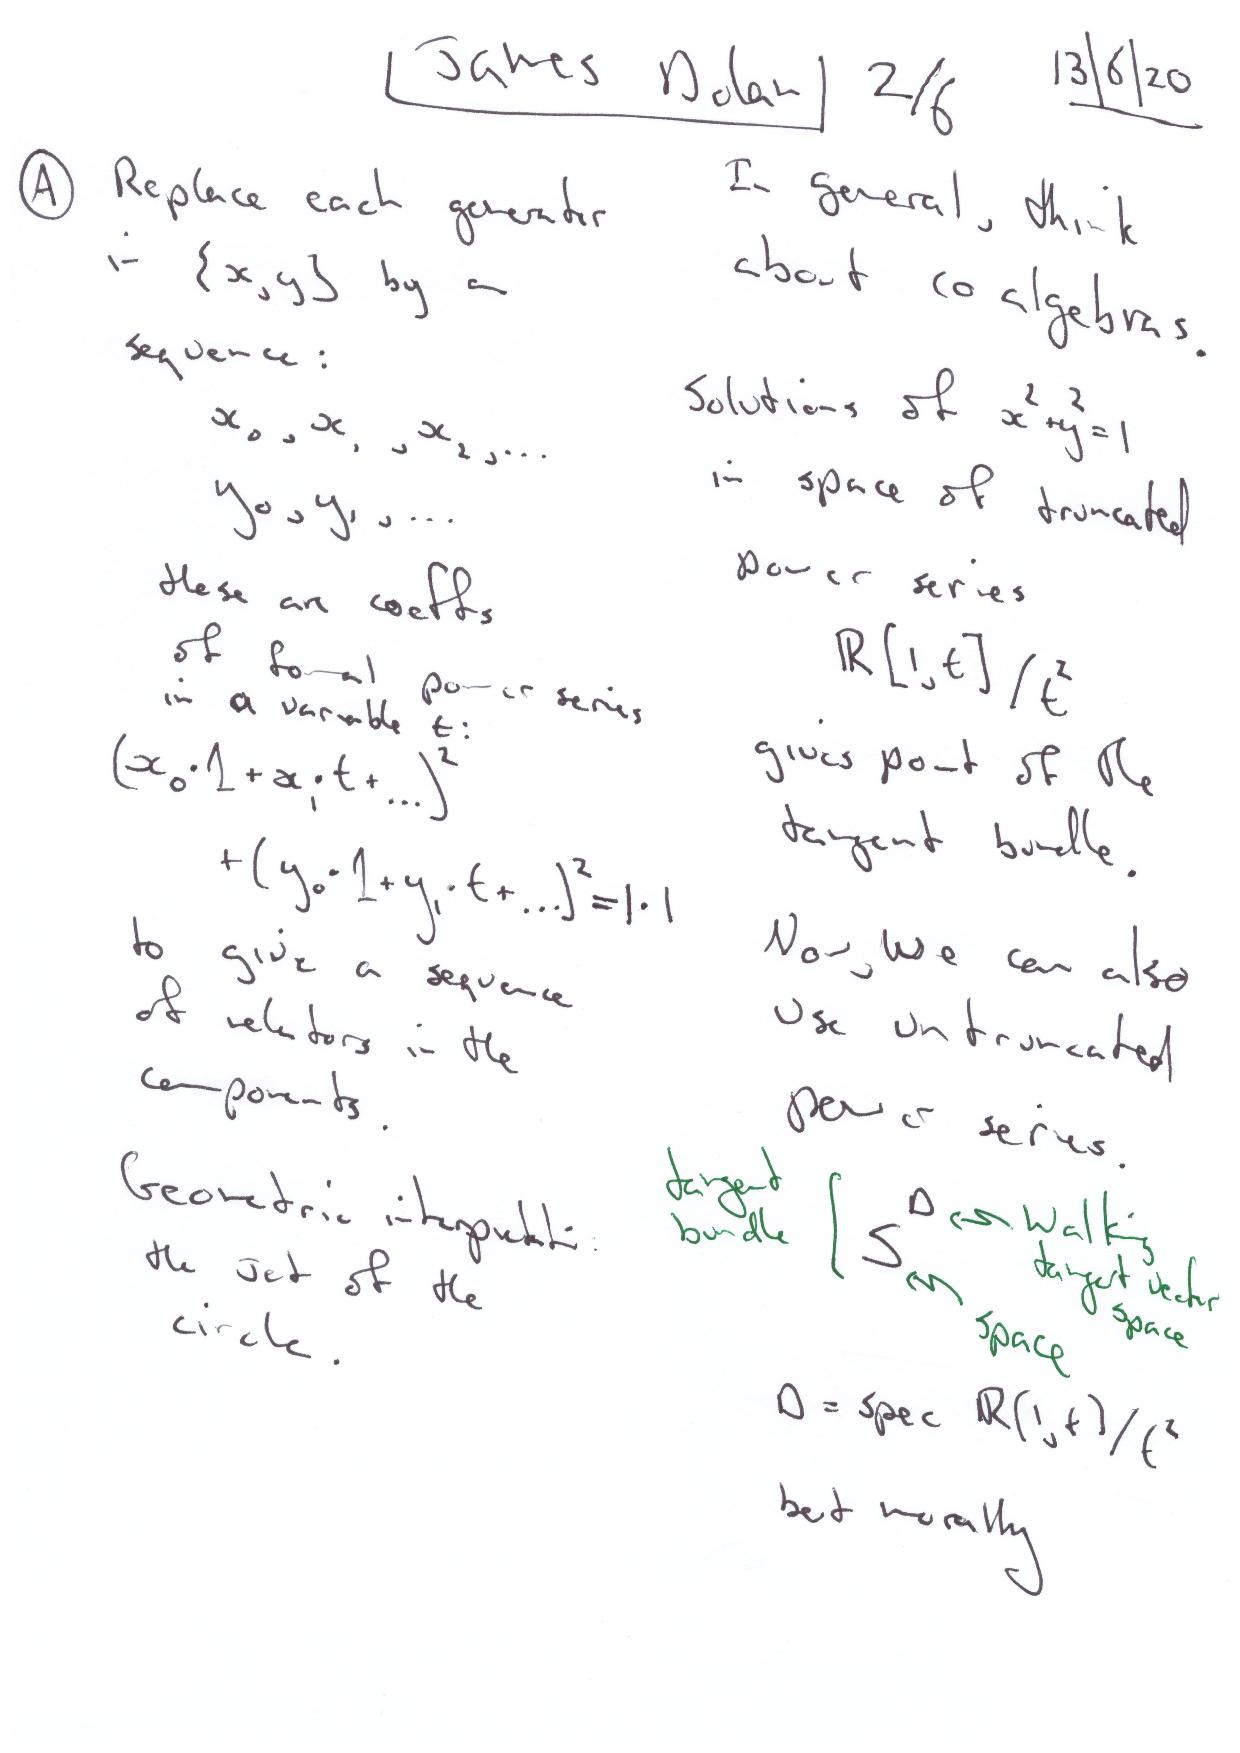 James Dolan 2/6 13/6/20
Ⓐ Replace each generator
in {x,y} by a
sequence:
x₀, x₁, x₂, ...
y₀, y₁, ...
these are coeffs
of formal power series
in a variable t:
(x₀·1 + x₁·t + ...)²
+ (y₀·1 + y₁·t + ...)² = 1·1
to give a sequence
of relators in the
components.
Geometric interpretation:
the jet of the
circle.
In general, think
about coalgebras.
Solutions of x²+y²=1
in space of truncated
power series
ℝ[1,t]/t²
gives point of the
tangent bundle.
Now, we can also
use untruncated
power series.
tangent
bundle
S^D
Walking
tangent vector
space
space
D = spec ℝ[1,t]/t²
but morally